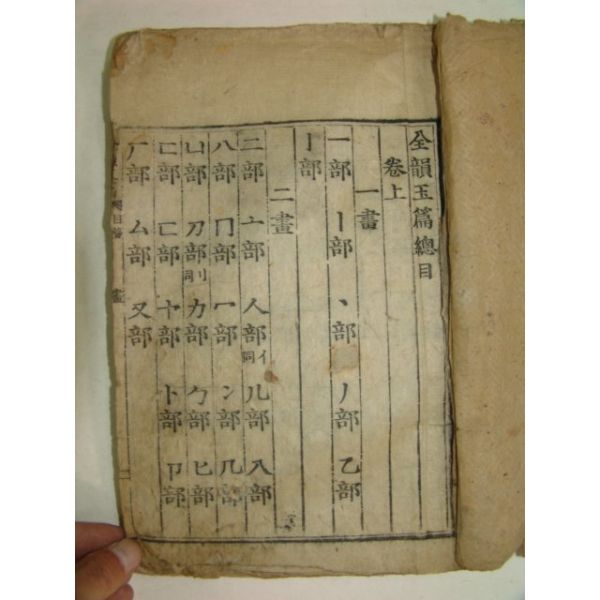 全韻玉篇總目
卷上
一畫
一部 丨部 丶部 丿部 乙部
亅部
二畫
二部 亠部 人部亻同 儿部 入部
八部 冂部 冖部 冫部 几部
凵部 刀部刂同 力部 勹部 匕部
匚部 匸部 十部 卜部 卩部
厂部 厶部 又部